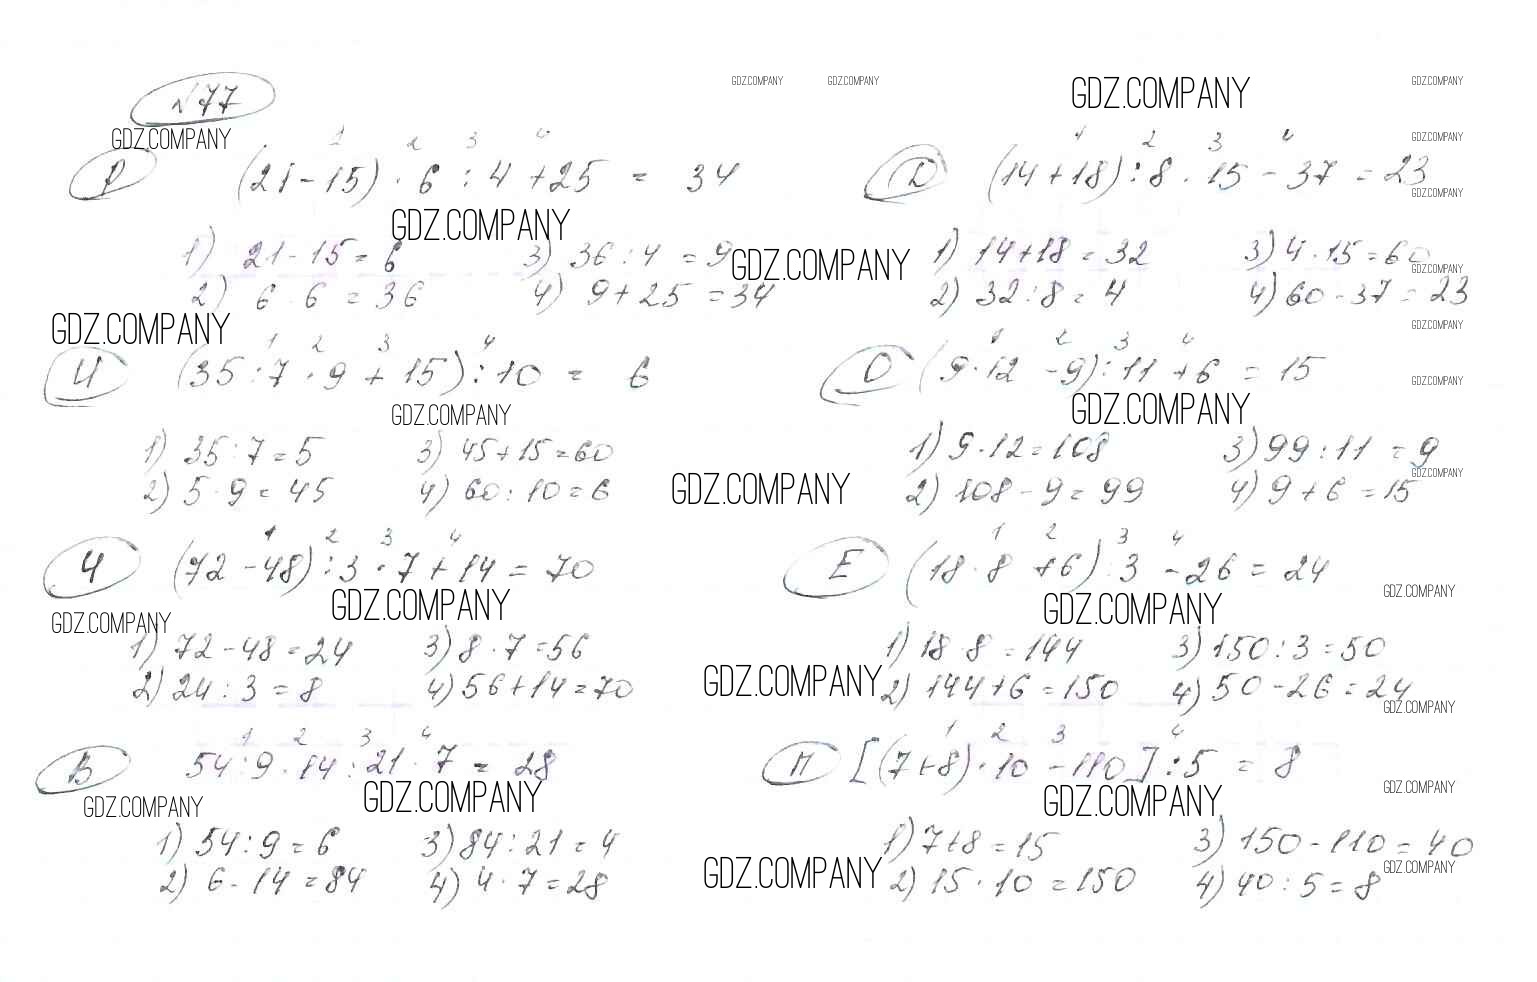 №77
GDZ.COMPANY GDZ.COMPANY GDZ.COMPANY GDZ.COMPANY
GDZ.COMPANY GDZ.COMPANY
1 2 3 4
Р (21-15) · 6 : 4 + 25 = 34
1 2 3 4
Д (14+18) : 8 · 15 - 37 = 23
GDZ.COMPANY GDZ.COMPANY
1) 21-15=6 3) 36:4=9
2) 6·6=36 4) 9+25=34
GDZ.COMPANY
1) 14+18=32 3) 4·15=60
2) 32:8=4 4) 60-37=23
GDZ.COMPANY
GDZ.COMPANY GDZ.COMPANY
1 2 3 4
И (35:7·9+15):10 = 6
1 2 3 4
О (9·12-9):11+6 = 15
GDZ.COMPANY
GDZ.COMPANY GDZ.COMPANY
1) 35:7=5 3) 45+15=60
2) 5·9=45 4) 60:10=6
GDZ.COMPANY
1) 9·12=108 3) 99:11=9
2) 108-9=99 4) 9+6=15
GDZ.COMPANY
1 2 3 4
Ч (72-48):3·7+14=70
1 2 3 4
Е (18·8+6):3-26=24
GDZ.COMPANY
GDZ.COMPANY GDZ.COMPANY GDZ.COMPANY
1) 72-48=24 3) 8·7=56
2) 24:3=8 4) 56+14=70
GDZ.COMPANY
1) 18·8=144 3) 150:3=50
2) 144+6=150 4) 50-26=24
GDZ.COMPANY
1 2 3 4
В 54:9·14:21·7=28
1 2 3 4
М [(7+8)·10-110]:5=8
GDZ.COMPANY
GDZ.COMPANY GDZ.COMPANY GDZ.COMPANY
1) 54:9=6 3) 84:21=4
2) 6·14=84 4) 4·7=28
GDZ.COMPANY
1) 7+8=15 3) 150-110=40
2) 15·10=150 4) 40:5=8
GDZ.COMPANY